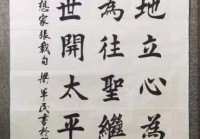 地立心為
為往聖繼
世開太平
想家張載句